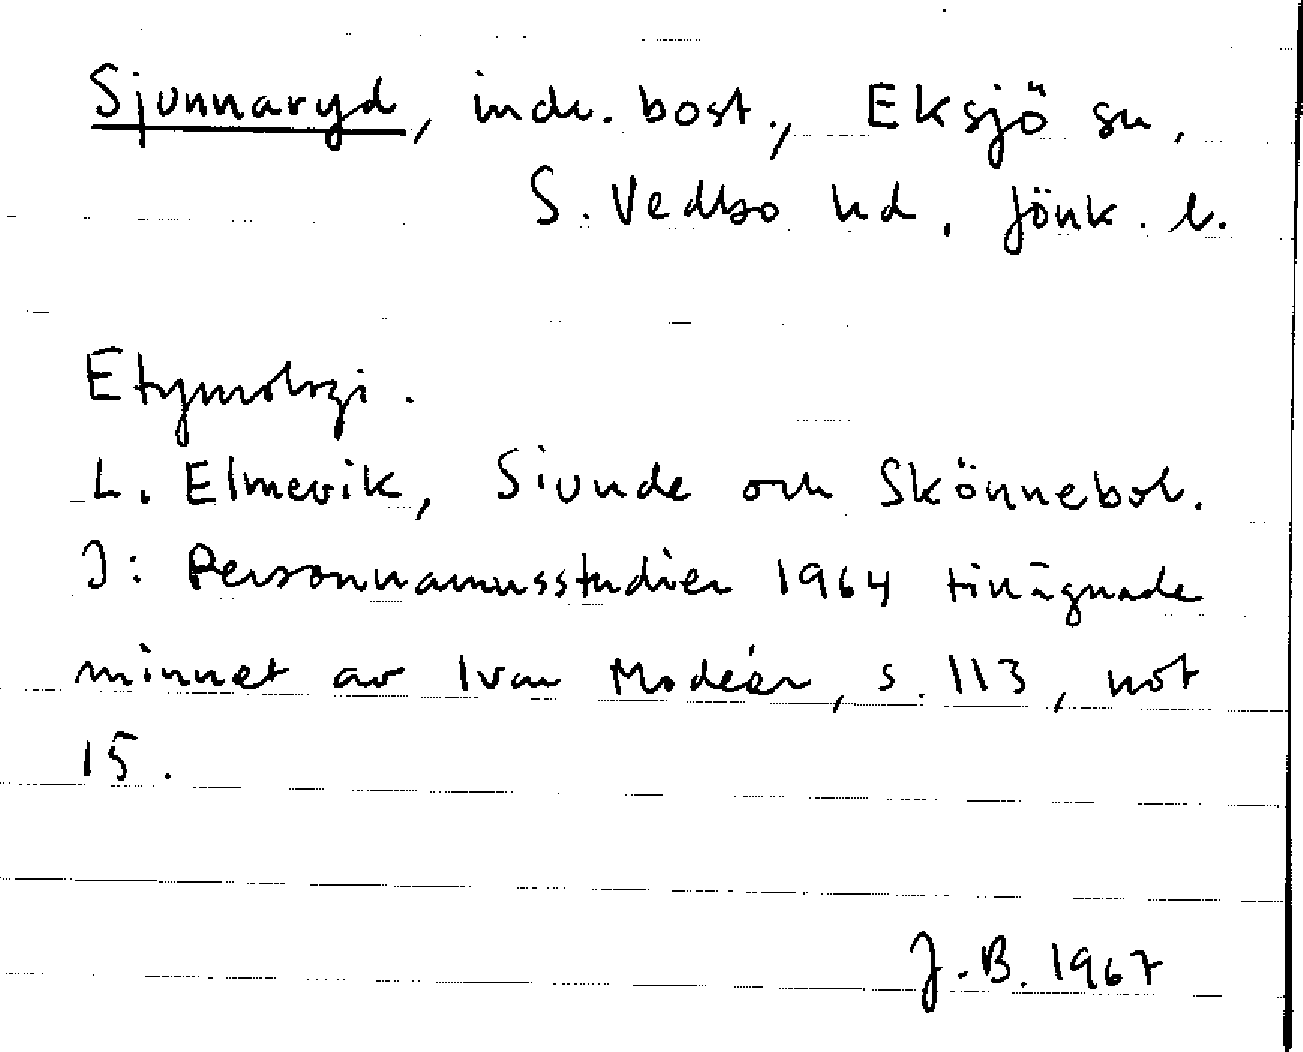 Sjunnaryd, inde. bost., Eksjö sn,
S. Vedbo hd, Jönk. l.
Etymologi.
L. Elmevik, Siunde och Skönnebol.
I: Personnamnsstudier 1964 tillägnade
minnet av Ivar Modéer, s. 113, not
15.
J.B. 1967